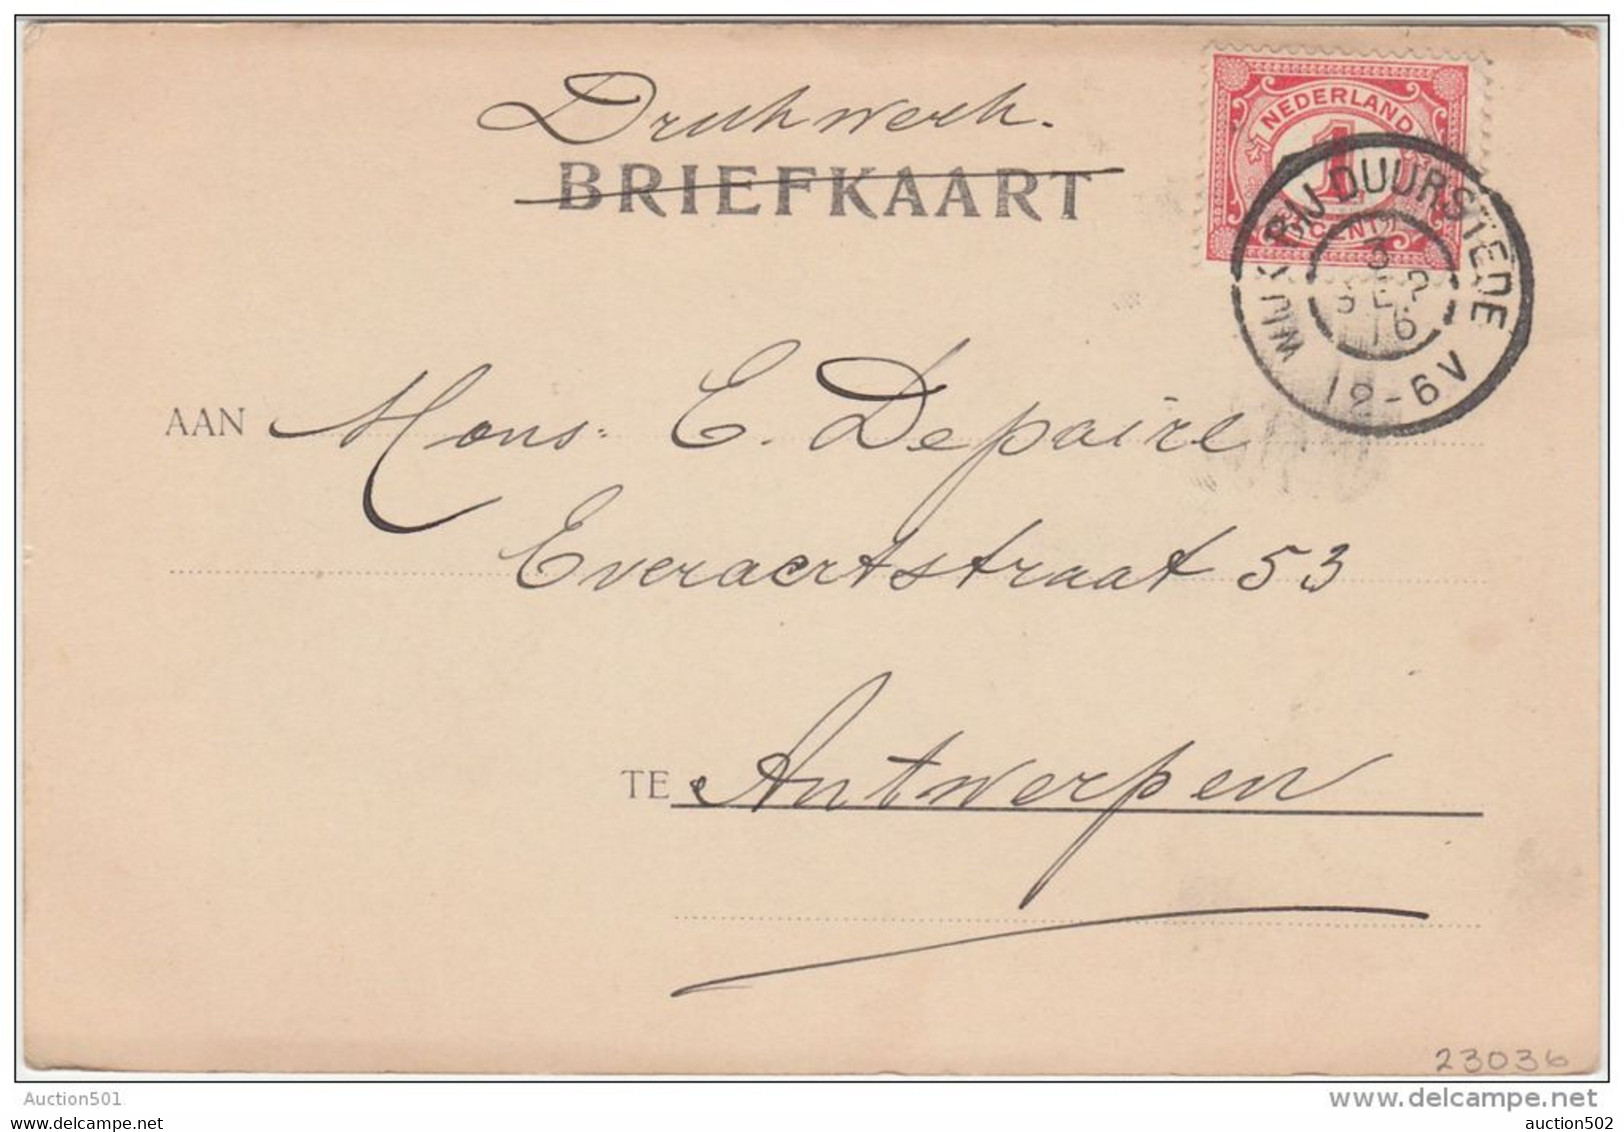 Drukwerk.
BRIEFKAART
NEDERLAND
1
CENT
WIJK BIJ DUURSTEDE
3
SEP
16
12-6V
AAN Mons: E. Depaire
Everaertstraat 53
TE Antwerpen
23036
Auction501
www.delcampe.net
auction502